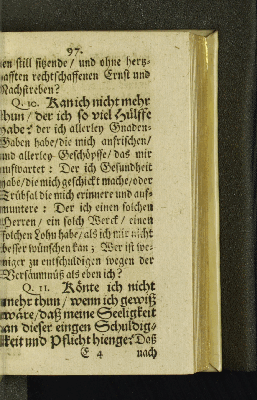 97.
en still sitzende / und ohne hertz-
afften rechtschaffenen Ernst und
Nachstreben?
Q. 10. Kan ich nicht mehr
thun / der ich so viel Hülffe
habe? der ich allerley Gnaden-
Gaben habe / die mich anfrischen /
und allerley Geschöpffe / das mir
aufwartet: Der ich Gesundheit
habe / die mich geschickt mache / oder
Trübsal die mich erinnere und auf-
muntere: Der ich einen solchen
Herren / ein solch Werck / einen
solchen Lohn habe / als ich mir nicht
besser wünschen kan; Wer ist we-
niger zu entschuldigen wegen der
Versäumnüß als eben ich?
Q. 11. Könte ich nicht
mehr thun / wenn ich gewiß
wäre / daß meine Seeligkeit
an dieser eingen Schuldig-
keit und Pflicht hienge? Daß
E 4 nach